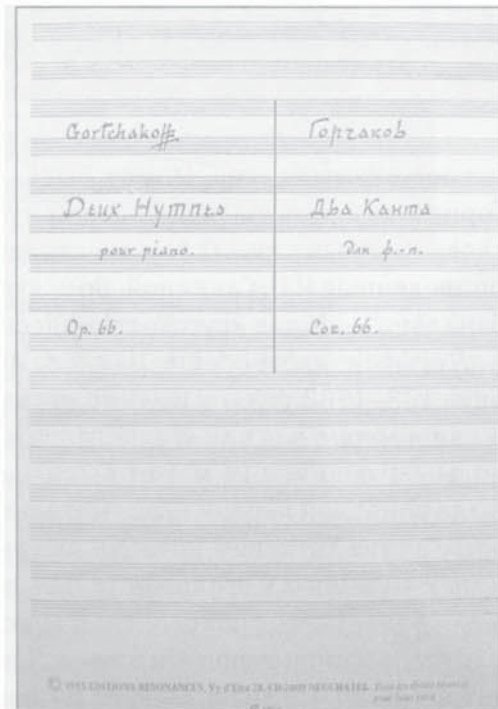 Gortchakoff
Deux Hymnes
pour piano.
Op. 66.
Горчаков
Два Канта
для ф.-п.
Соч. 66.
EDITIONS RESONANCES, Vy d'Etra 28, CH 2009 NEUCHATEL